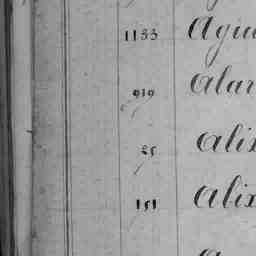 1133 Agu
919 Alar
25 Alix
151 Alix